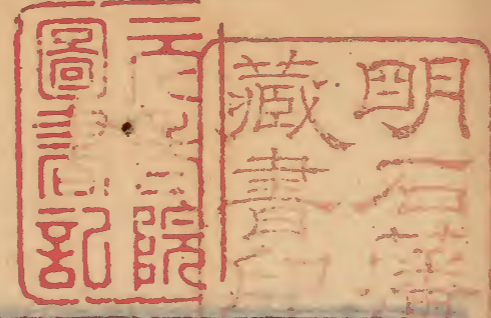 明石
藏書
元老院
圖書記